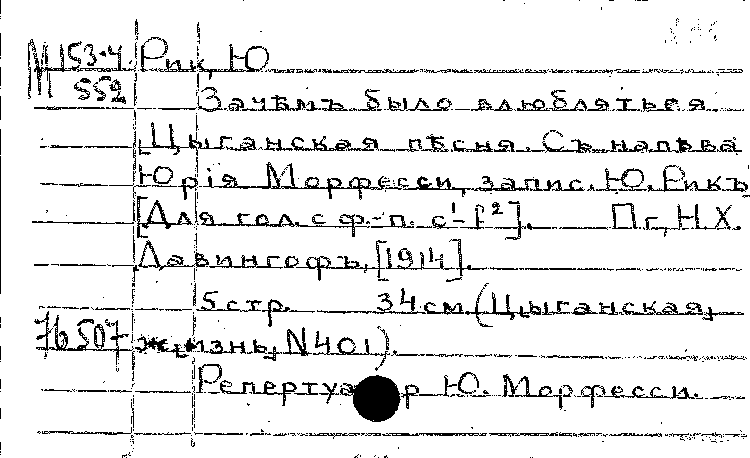 М 153-4 Рик, Ю
552 Зачѣмъ было влюбляться.
Цыганская пѣсня. Съ напѣва
Юрія Морфесси, запис. Ю. Рикъ
[Для гол. с ф.-п. c¹-f²]. Пг, Н.Х.
Давингофъ, [1914].
5 стр. 34 см. (Цыганская
76507 жизнь, N401).
Репертуар Ю. Морфесси.